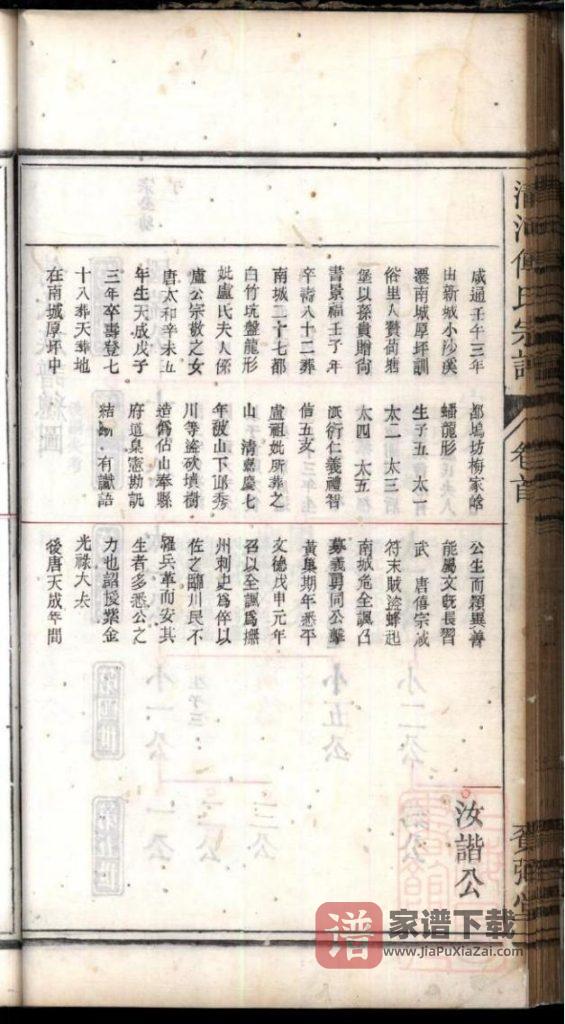 清河傅氏宗譜
卷首
賚弼堂
咸通壬午三年
由新城小沙溪
遷南城厚坪訓
俗里人贊荷塘
堡以孫貴贈尚
書景福壬子年
卒壽八十二葬
南城二十七都
白竹坑盤龍形
妣盧氏夫人係
盧公宗敬之女
唐太和辛未五
年生天成戊子
三年卒壽登七
十八葬天葬地
在南城厚坪中
都塢坊梅家嶠
蟠龍形
生子五 太一
太二 太三
太四 太五
派衍仁義禮智
信五支
盧祖妣所葬之
山 清嘉慶七
年被山下邱秀
川等盜砍墳樹
造偽佔山奉縣
府道臬憲勘訊
結斷 有讖語
公生而穎異善
能屬文既長習
武 唐僖宗咸
符末賊盜蜂起
南城危全諷召
募義勇同公擊
黃巢期年悉平
文德戊申元年
召以全諷爲撫
州刺史爲倅以
佐之臨川民不
罹兵革而安其
生者多悉公之
力也詔授紫金
光祿大夫
後唐天成年間
汝諧公
譜
家谱下载
www.JiaPuXiaZai.com